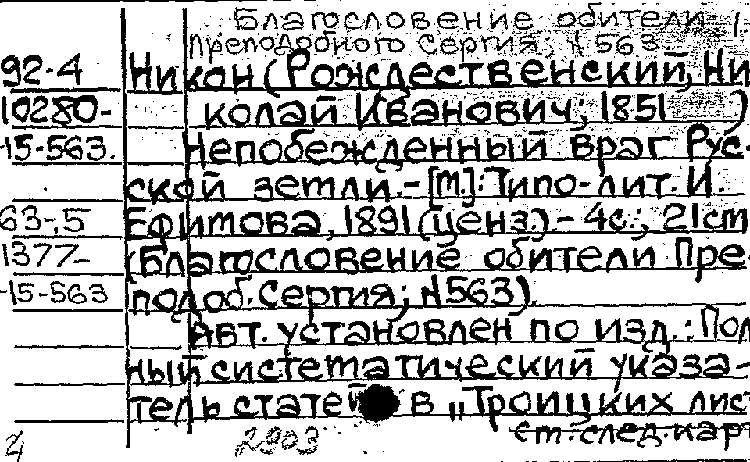 Благословение обители
Преподобного Сергия; N 563
92-4 Никон (Рождественский, Ни
10280- колай Иванович; 1851 )
15-563. Непобежденный враг Рус-
ской земли. - [М.]: Типо-лит. И.
63-5 Ефимова, 1891 (ценз.). - 4с.; 21см
1377- (Благословение обители Пре-
-15-563 подоб. Сергия; N563).
Авт. установлен по изд.: Пол
ный систематический указа-
тель статей в „Троицких лист
См. след. карт
2903